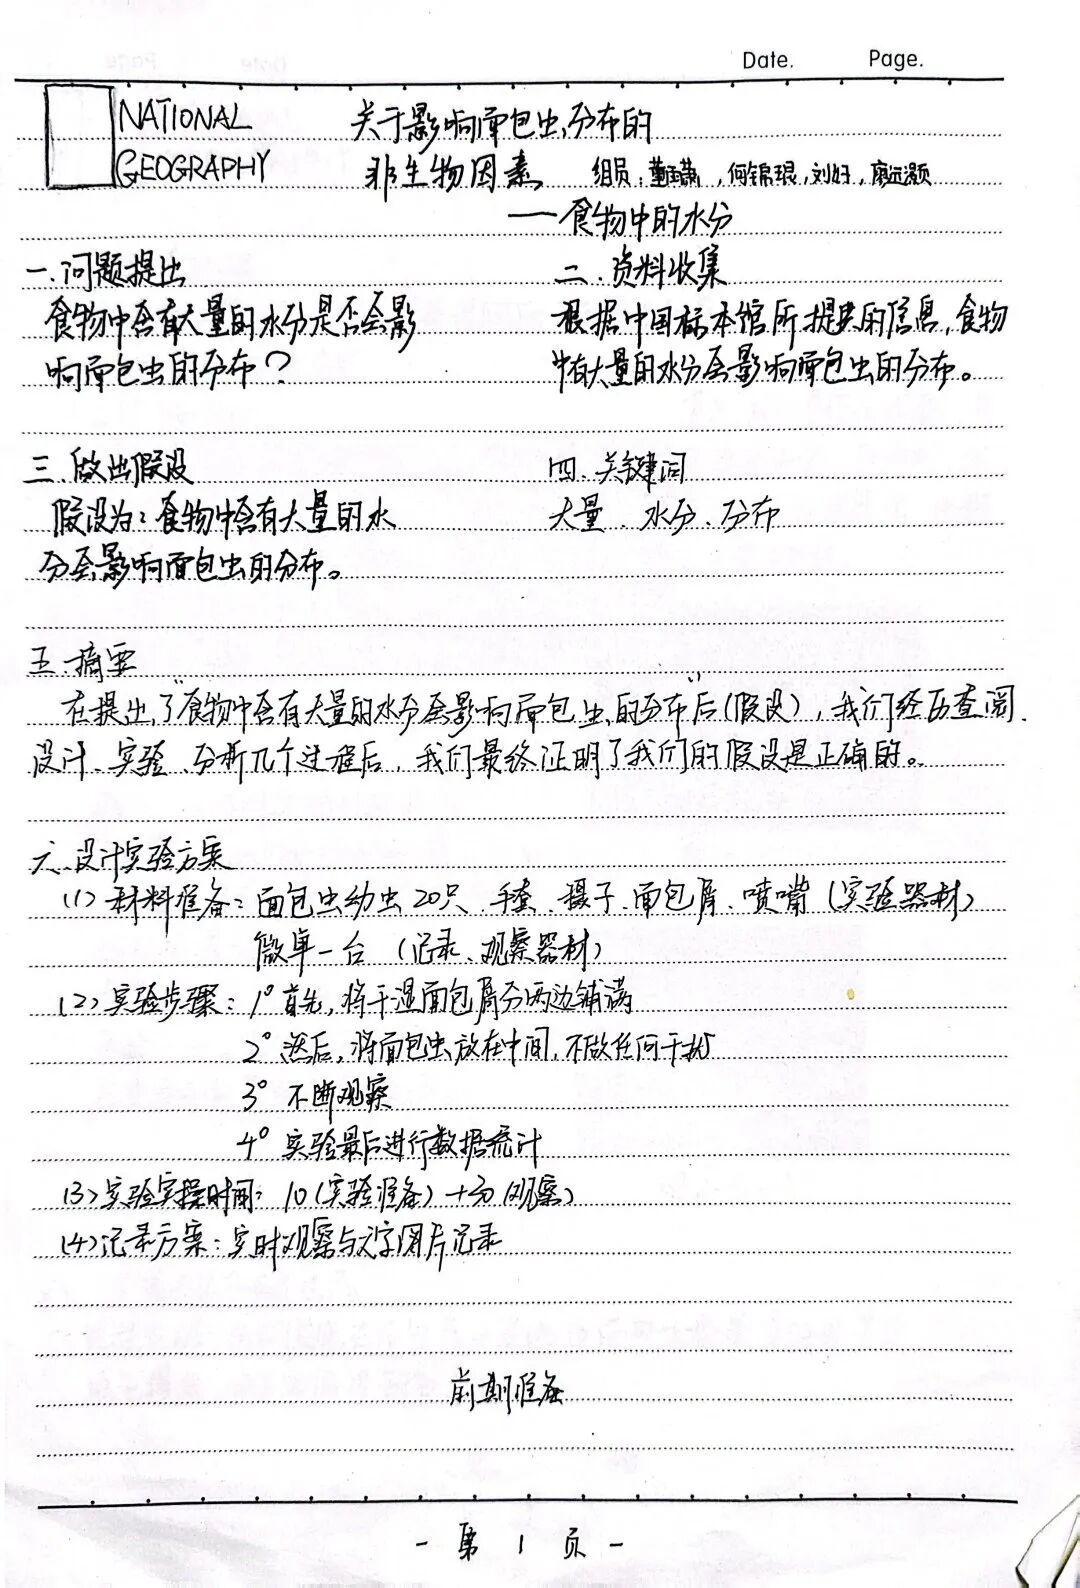 Date. Page.
NATIONAL
GEOGRAPHY
关于影响面包虫分布的
非生物因素 组员:董玉潇,何锦琨,刘好,廖远灏
——食物中的水分
一.问题提出
食物中含有大量的水分是否会影
响面包虫的分布?
二.资料收集
根据中国标本馆所提供的信息,食物
中有大量的水分会影响面包虫的分布。
三.做出假设
假设为:食物中含有大量的水
分会影响面包虫的分布。
四.关键词
大量、水分、分布
五.摘要
在提出了“食物中含有大量的水分会影响面包虫的分布”后(假设),我们经历查阅、
设计、实验、分析几个过程后,我们最终证明了我们的假设是正确的。
六.设计实验方案
(1)材料准备:面包虫幼虫20只、手套、镊子、面包屑、喷嘴(实验器材)
微单一台(记录、观察器材)
(2)实验步骤:1°首先,将干湿面包屑分两边铺满
2°然后,将面包虫放在中间,不做任何干扰
3°不断观察
4°实验最后进行数据统计
(3)实验实操时间:10(实验准备)+30(观察)
(4)记录方案:实时观察与文字图片记录
前期准备
- 第 1 页 -